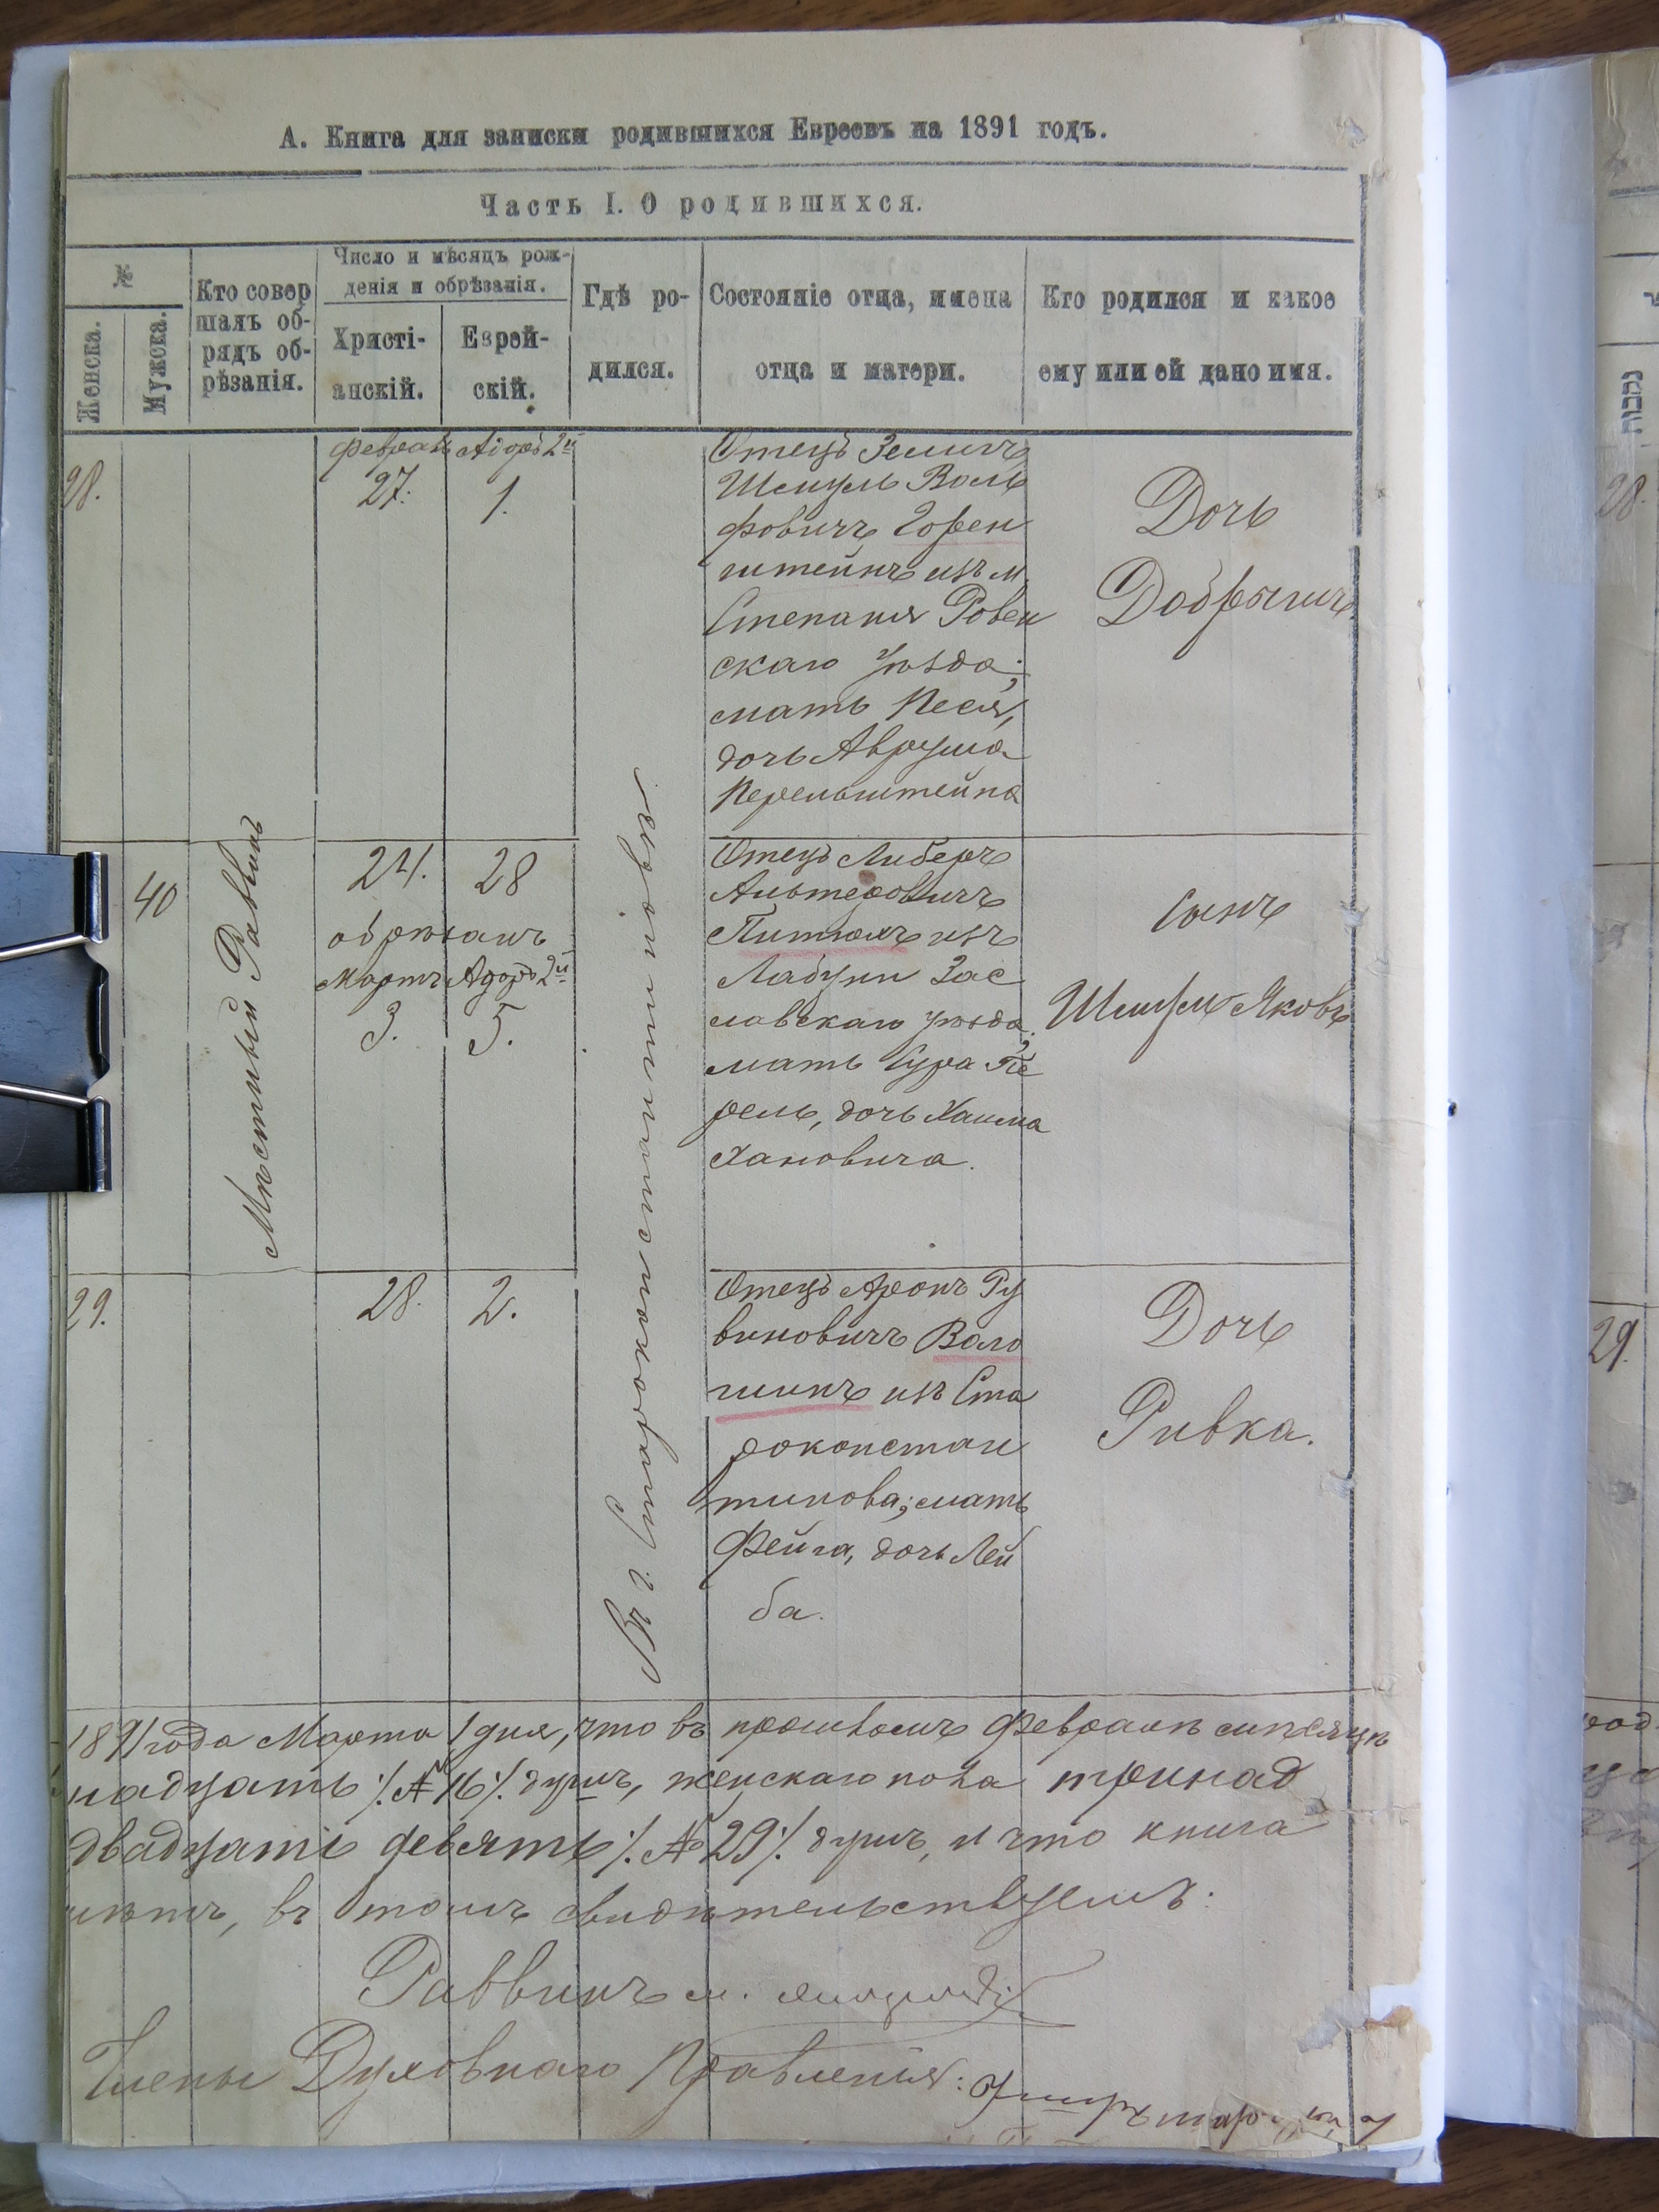 А. Книга для записки родившихся Евреевъ на 1891 годъ.
Часть I. О родившихся.
№
Женска.
Мужска.
Кто совер
шалъ об-
рядъ об-
рѣзанія.
Число и мѣсяцъ рож-
денія и обрѣзанія.
Христі-
анскій.
Еврей-
скій.
Гдѣ ро-
дился.
Состояніе отца, имена
отца и матери.
Кто родился и какое
ему или ей дано имя.
28.
Февраль
27.
Адоръ 2й
1.
Отецъ Зелигъ
Шмуль Воль
фовичъ Горен
штейнъ изъ м.
Степаня Ровен
скаго уѣзда;
мать Песя,
дочь Аврума
Перельштейна
Дочь
40
Мѣстный Раввинъ
24.
28
обрѣзанъ
Мартъ Адоръ 2й
3.
5.
Въ г. Староконстантиновѣ
Отецъ Либеръ
Альтеровичъ
изъ
Лабуни Зас
лавскаго уѣзда;
мать Сура Пе
рель, дочь Хаима
Хановича.
Сынъ
Шмуль Яковъ
29.
28.
2.
Отецъ Аронъ Ру
виновичъ Воло
шинъ изъ Ста
роконстан
тинова; мать
Фейга, дочь Лей
ба.
Дочь
Ривка.
1891 года Марта 1 дня, что въ прошломъ Февралѣ мѣсяцѣ
надцать ./. № 16 ./. душъ, женскаго пола тринад
двадцать девять ./. № 29 ./. душъ, и что книга
въ томъ свидѣтельствуемъ:
Раввинъ м.
Члены Духовнаго Правленія:
נקבות
28.
29.